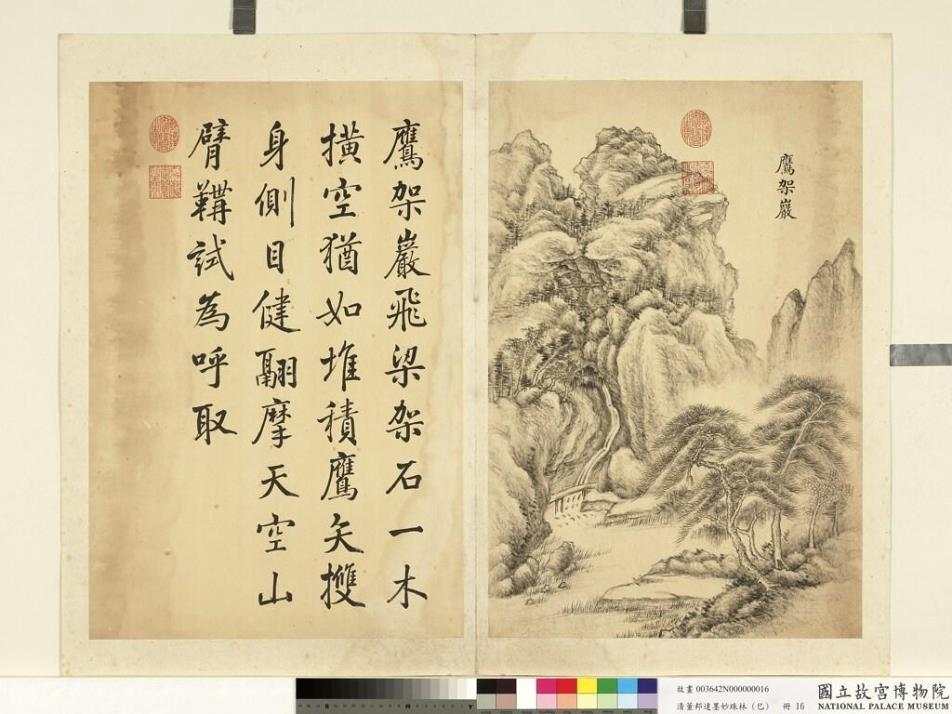 鷹架巖
鷹架巖飛梁架石一木
橫空猶如堆積鷹矢㩳
身側目健翮摩天空山
臂鞲試為呼取
故畫 003642N000000016
清董邦達墨妙珠林（巳） 冊 16
國立故宮博物院
NATIONAL PALACE MUSEUM